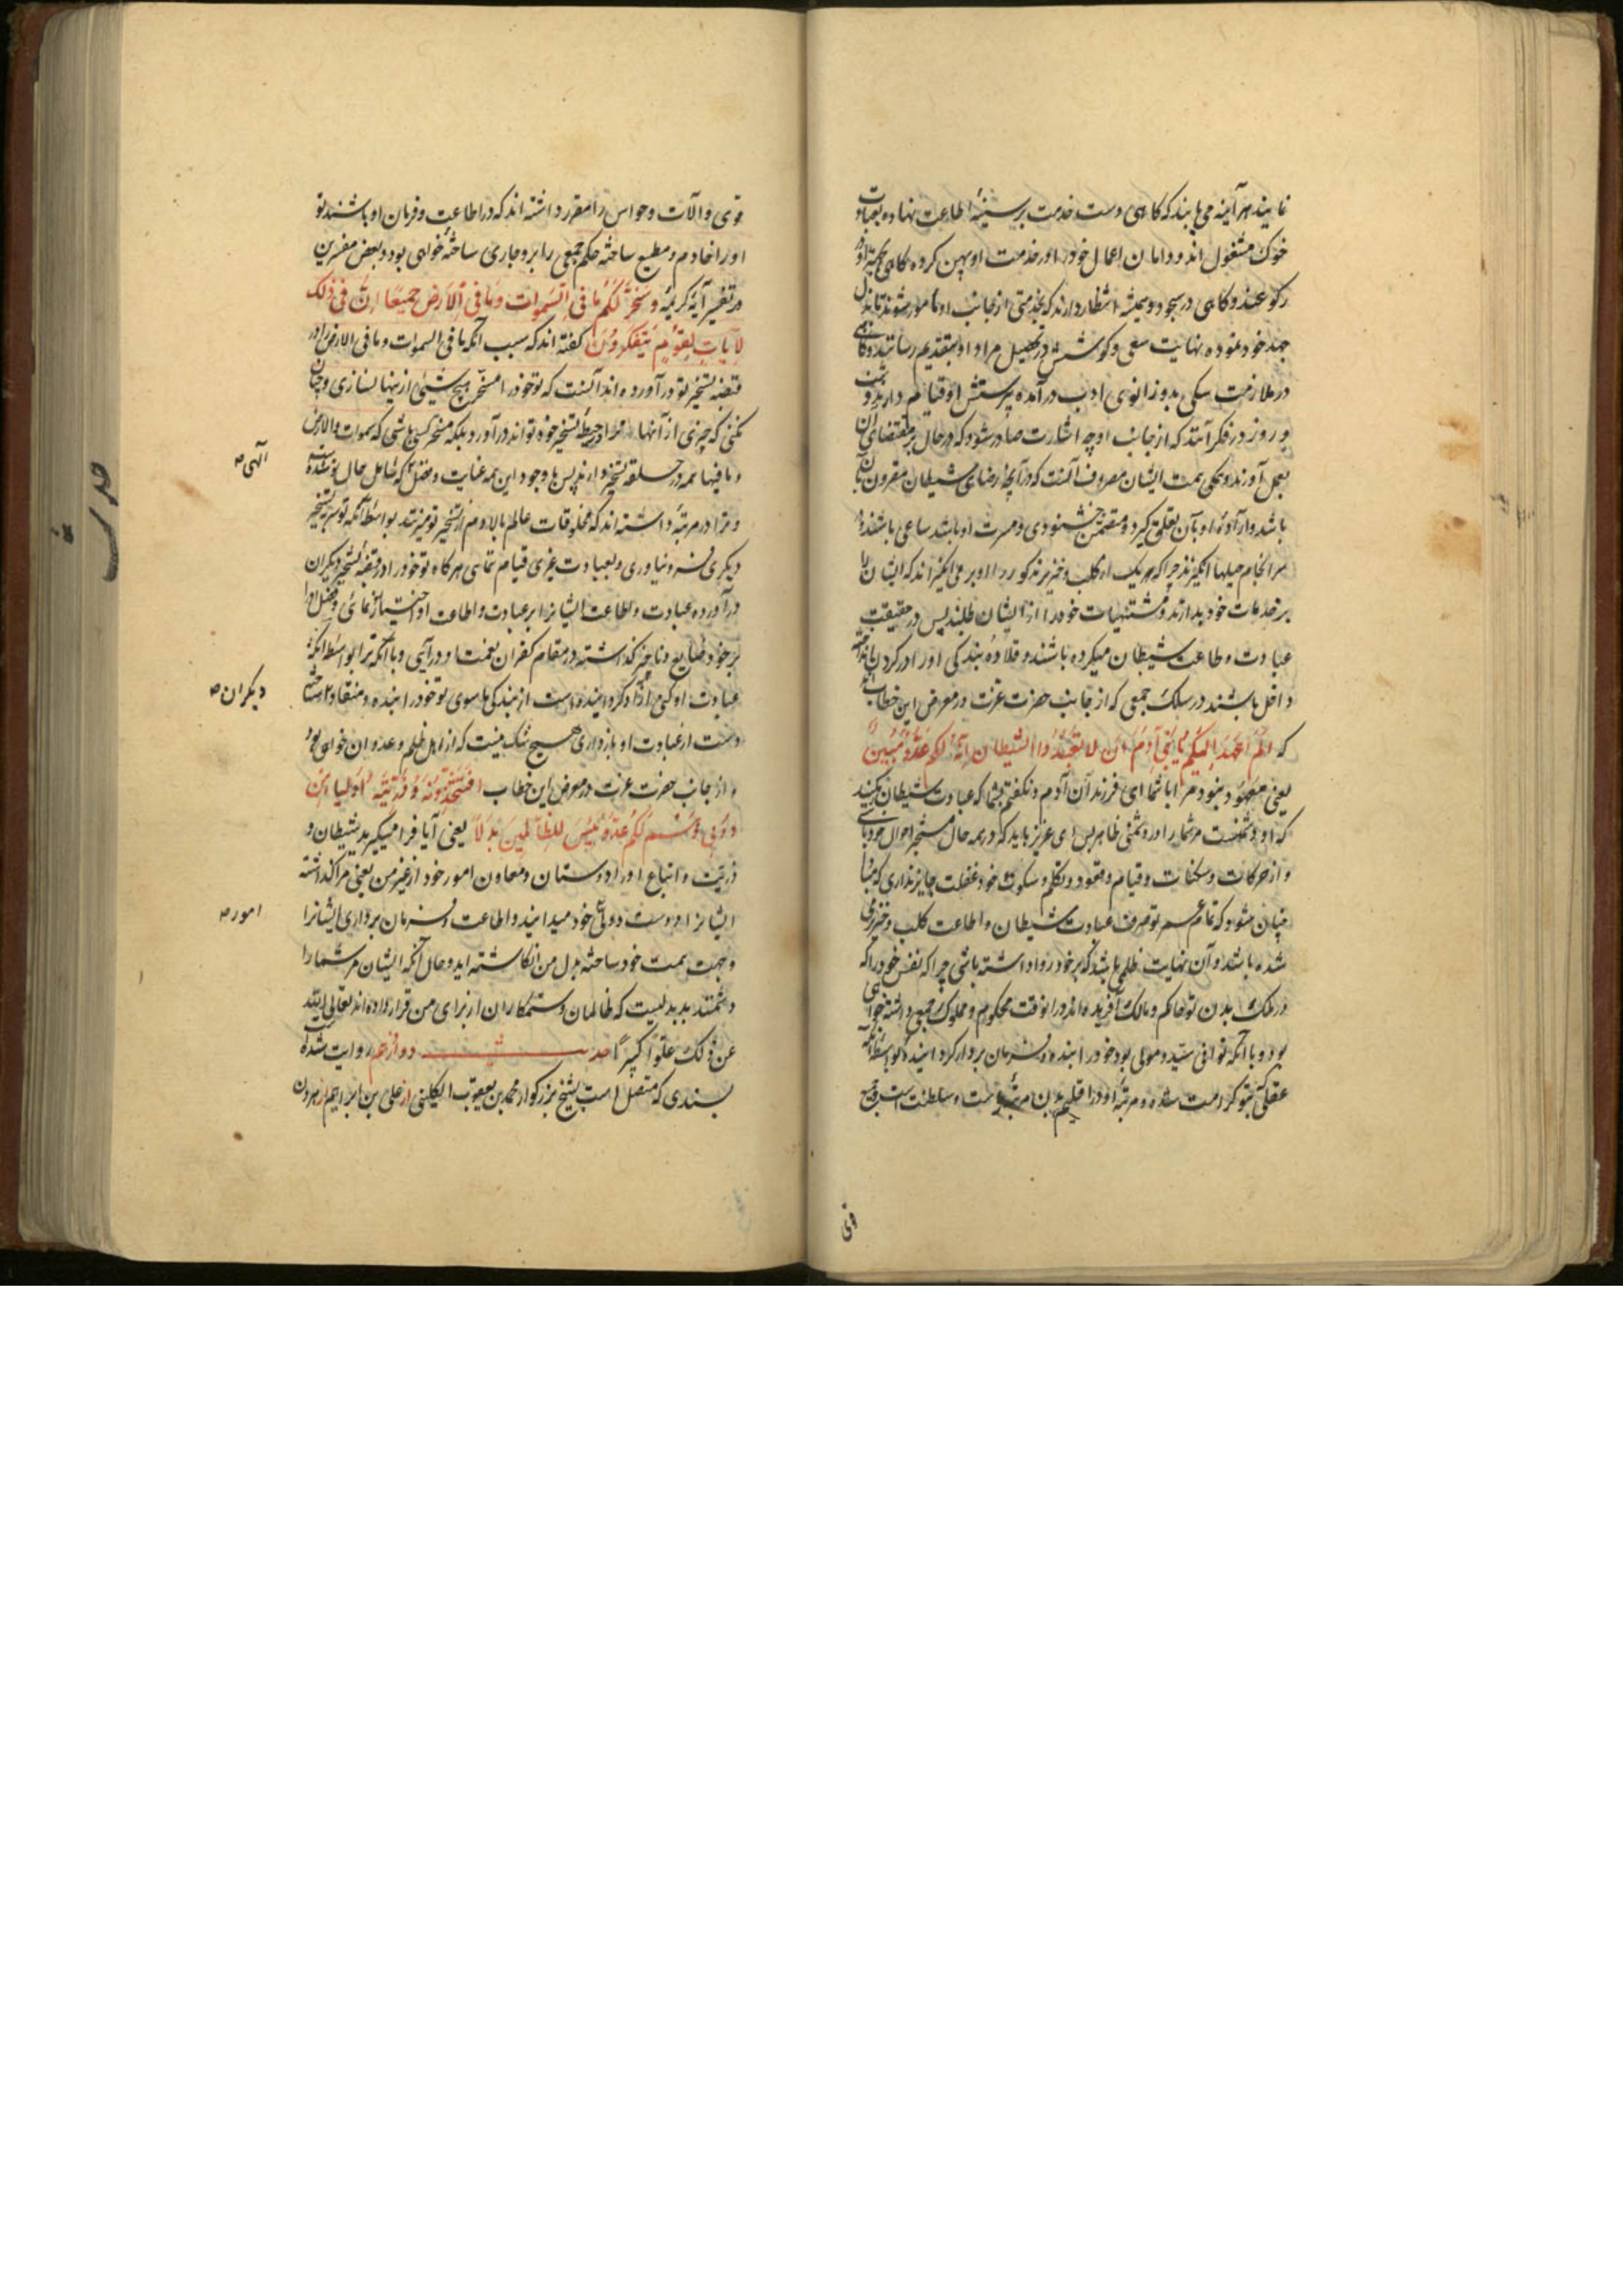 نمایند هرآینه می یابند که کاهی دست خدمت بر سینهٔ اطاعت نهاده بعبادت
خوک مشغول اند و دامان اعمال خود را در خدمت او پهن کرده کاهی بجهة او در
رکوعند و کاهی در سجود و همیشه انتظار دارند که بخدمتی از جانب او مأمور شوند تا بذل
جهد خود نموده نهایت سعی و کوشش در تحصیل مراد او بتقدیم رسانند و کاهی
در ملازمت سکی بدو زانوی ادب در آمده بپرستش او قیام دارند و شب
و روز در فکر آنند که از جانب او چه اشارت صادر شود که در حال بر مقتضای آن
بعمل آورند و همکی همت ایشان مصروف آنست که در آنچه رضای شیطان مقرون بآن
باشد و اراده او بآن تعلق کیرد و متضمن خشنودی و مسرت او باشد ساعی باشند و
سرانجام حیلها انکیزند چرا که هریک از کلب و خنزیر مذکور را او بر می انکیزاند که ایشان را
بر خدمات خود بدارند و مشتهیات خود را از ایشان طلبند پس در حقیقت
عبادت و طاعت شیطان میکرده باشند و قلاده بندکی او را در کردن انداخته
داخل باشند در سلک جمعی که از جانب حضرت عزت در معرض این خطاب اند
که الم اعهد الیکم یا بنی آدم ان لا تعبدوا الشیطان انه لکم عدو مبین
یعنی معهود نبود مرا با شما ای فرزندان آدم و نکفتم بشما که عبادت شیطان نکنید
که او دشمنست مر شما را و دشمنی ظاهر پس ای عزیز باید که در همه حال متفحر احوال خود باشی
و از حرکات و سکنات و قیام و قعود و تکلم و سکوت خود غفلت جایز نداری که مبادا
چنان شود که تمام عمر تو صرف عبادت شیطان و اطاعت کلب و خنزیری
شده باشد و آن نهایت ظلمی باشد که بر خود روا داشته باشی چرا که نفس خود را که
در ملک بدن تو حاکم و مالک آفریده اند در آنوقت محکوم و مملوک جمعی داشته خواهی
بود و با آنکه تو آقا و سید و مولی بود خود را بنده و فرمان بردار کردانیده که بواسطه آنکه
عقلی بتو کرامت شده و مرتبه او در اقلیم بدن مرتبه ریاست و سلطنت است و جمیع
قوی
قوی و آلات و حواس را مقرر داشته اند که در اطاعت و فرمان او باشند تو
او را خادم و مطیع ساخته حکم جمعی را برو جاری ساخته خواهی بود و بعض مفسرین
در تفسیر آیهٔ کریمه و سخر لکم ما فی السموات و ما فی الارض جمیعا ان فی ذلک
لآیات لقوم یتفکرون کفته اند که سبب آنکه ما فی السموات و ما فی الارض را در
قبضه تسخیر تو در آورده اند آنست که تو خود را مسخر هیچ شیئی از ینها نسازی و چنان
نکنی که چیزی از آنها ترا در حیطه تسخیر خود تواند در آورد بلکه مسخر کسی باشی که سموات و الارض
و ما فیها همه در حلقه تسخیر دارند پس با وجود این همه عنایت و فضل که شامل حال تو شده
الهی صه
و ترا در مرتبهٔ داشته اند که مخلوقات عالم بالا و هم از تسخیر تو میزنند بواسطه آنکه تو سر بتسخیر
دیکری فرو نیاوری و بعبادت غیری قیام ننمائی هرکاه تو خود را در قبضه تسخیر دیکران
در آورده عبادت و اطاعت ایشانرا بر عبادت و اطاعت او اختیار نمائی و فضل او را
بر خود ضایع و ناچیز کذاشته در مقام کفران نعمت او در آئی و با آنکه ترا بواسطه آنکه
عبادت او کنی آزاد کردانیده است از بندکی ماسوی تو خود را بنده و منقاد ساخته
دیکران صه
دست از عبادت او بازداری هیچ شک نیست که از اهل ظلم و عدوان خواهی بود
و از جانب حضرت عزت در معرض این خطاب افتتخذونه و ذریته اولیاء من
دونی و هم لکم عدو بئس للظالمین بدلا یعنی آیا فرا میکیرید شیطان و
ذریت و اتباع او را دوستان و معاون امور خود از غیر من یعنی مرا کذاشته
ایشانرا دوست و ولی خود میدانید و اطاعت و فرمان برداری ایشانرا
امور صه
وجهت همت خود ساخته بدل من انکاشته اید و حال آنکه ایشان مر شما را
دشمنند بد بدلیست که ظالمان و ستمکاران از برای من قرار داده اند تعالی الله
عن ذلک علوا کبیرا حدیث دوازدهم روایت شده
بسندی که متصل است بشیخ بزرکوار محمد بن یعقوب الکلینی از علی بن ابراهیم از هرون
حدیث